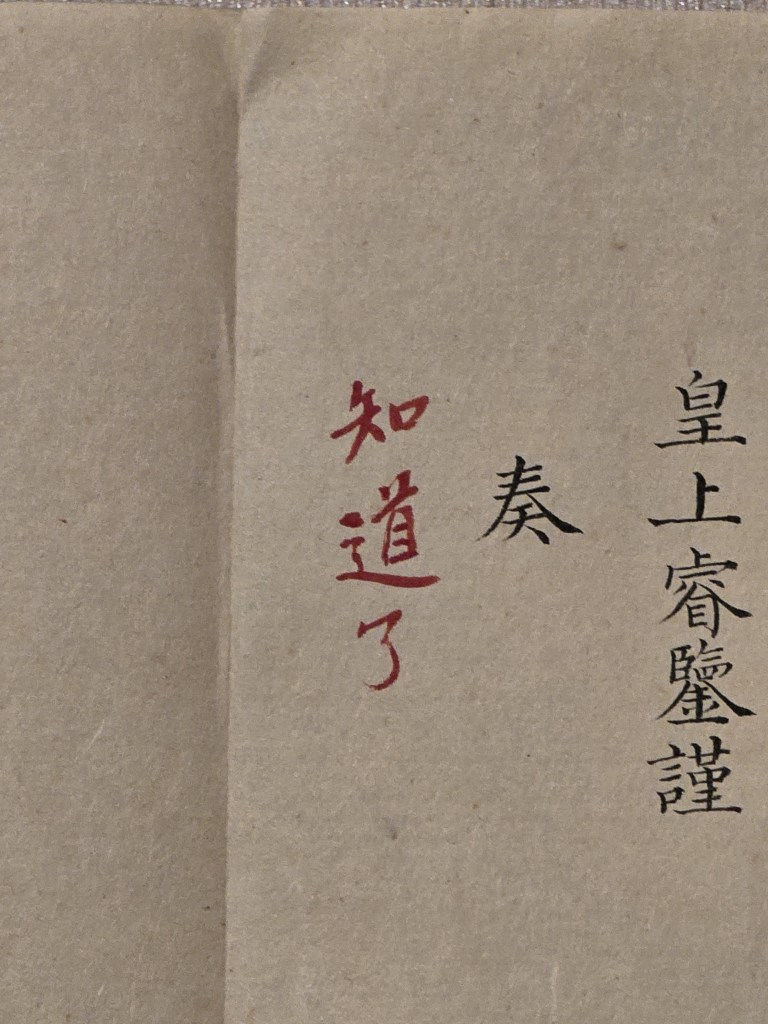 皇上睿鑒謹
奏
知道了